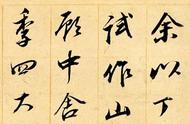 余以丁
試作山
顧中舍
季四大